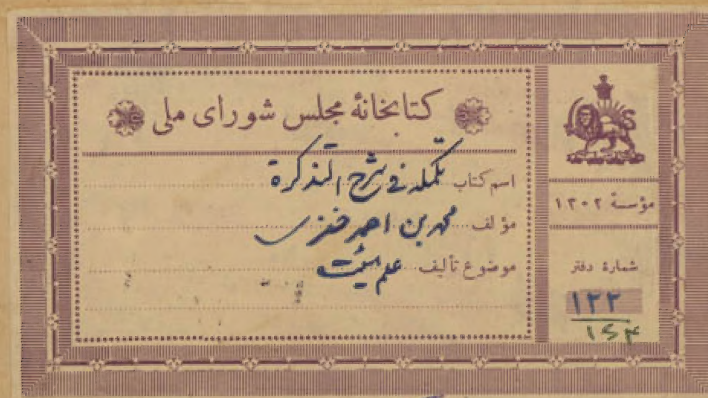 کتابخانهٔ مجلس شورای ملی
اسم کتاب تکمله فی شرح التذکرة
مؤلف محمد بن احمد خفری
موضوع تألیف علم هیئت
مؤسسهٔ ۱۳۰۲
شمارهٔ دفتر
۱۲۲
۱۶۴